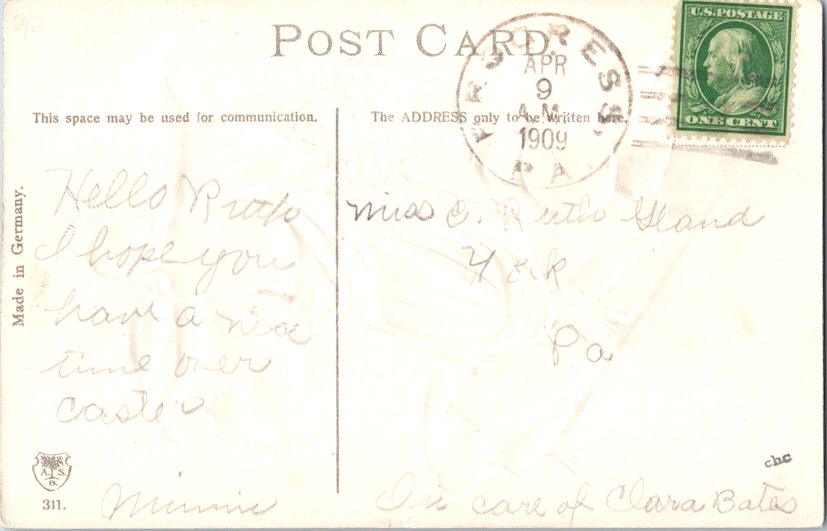 POST CARD
U.S. POSTAGE
ONE CENT
APR
9
A.M.
1909
PA
This space may be used for communication.
The ADDRESS only to be written here.
Made in Germany.
Hello Ruth
I hope you
have a nice
time over
easter
Minnie
Miss E. Ruth Gland
York
Pa
In care of Clara Bates
A. S.
B.
311.
chc